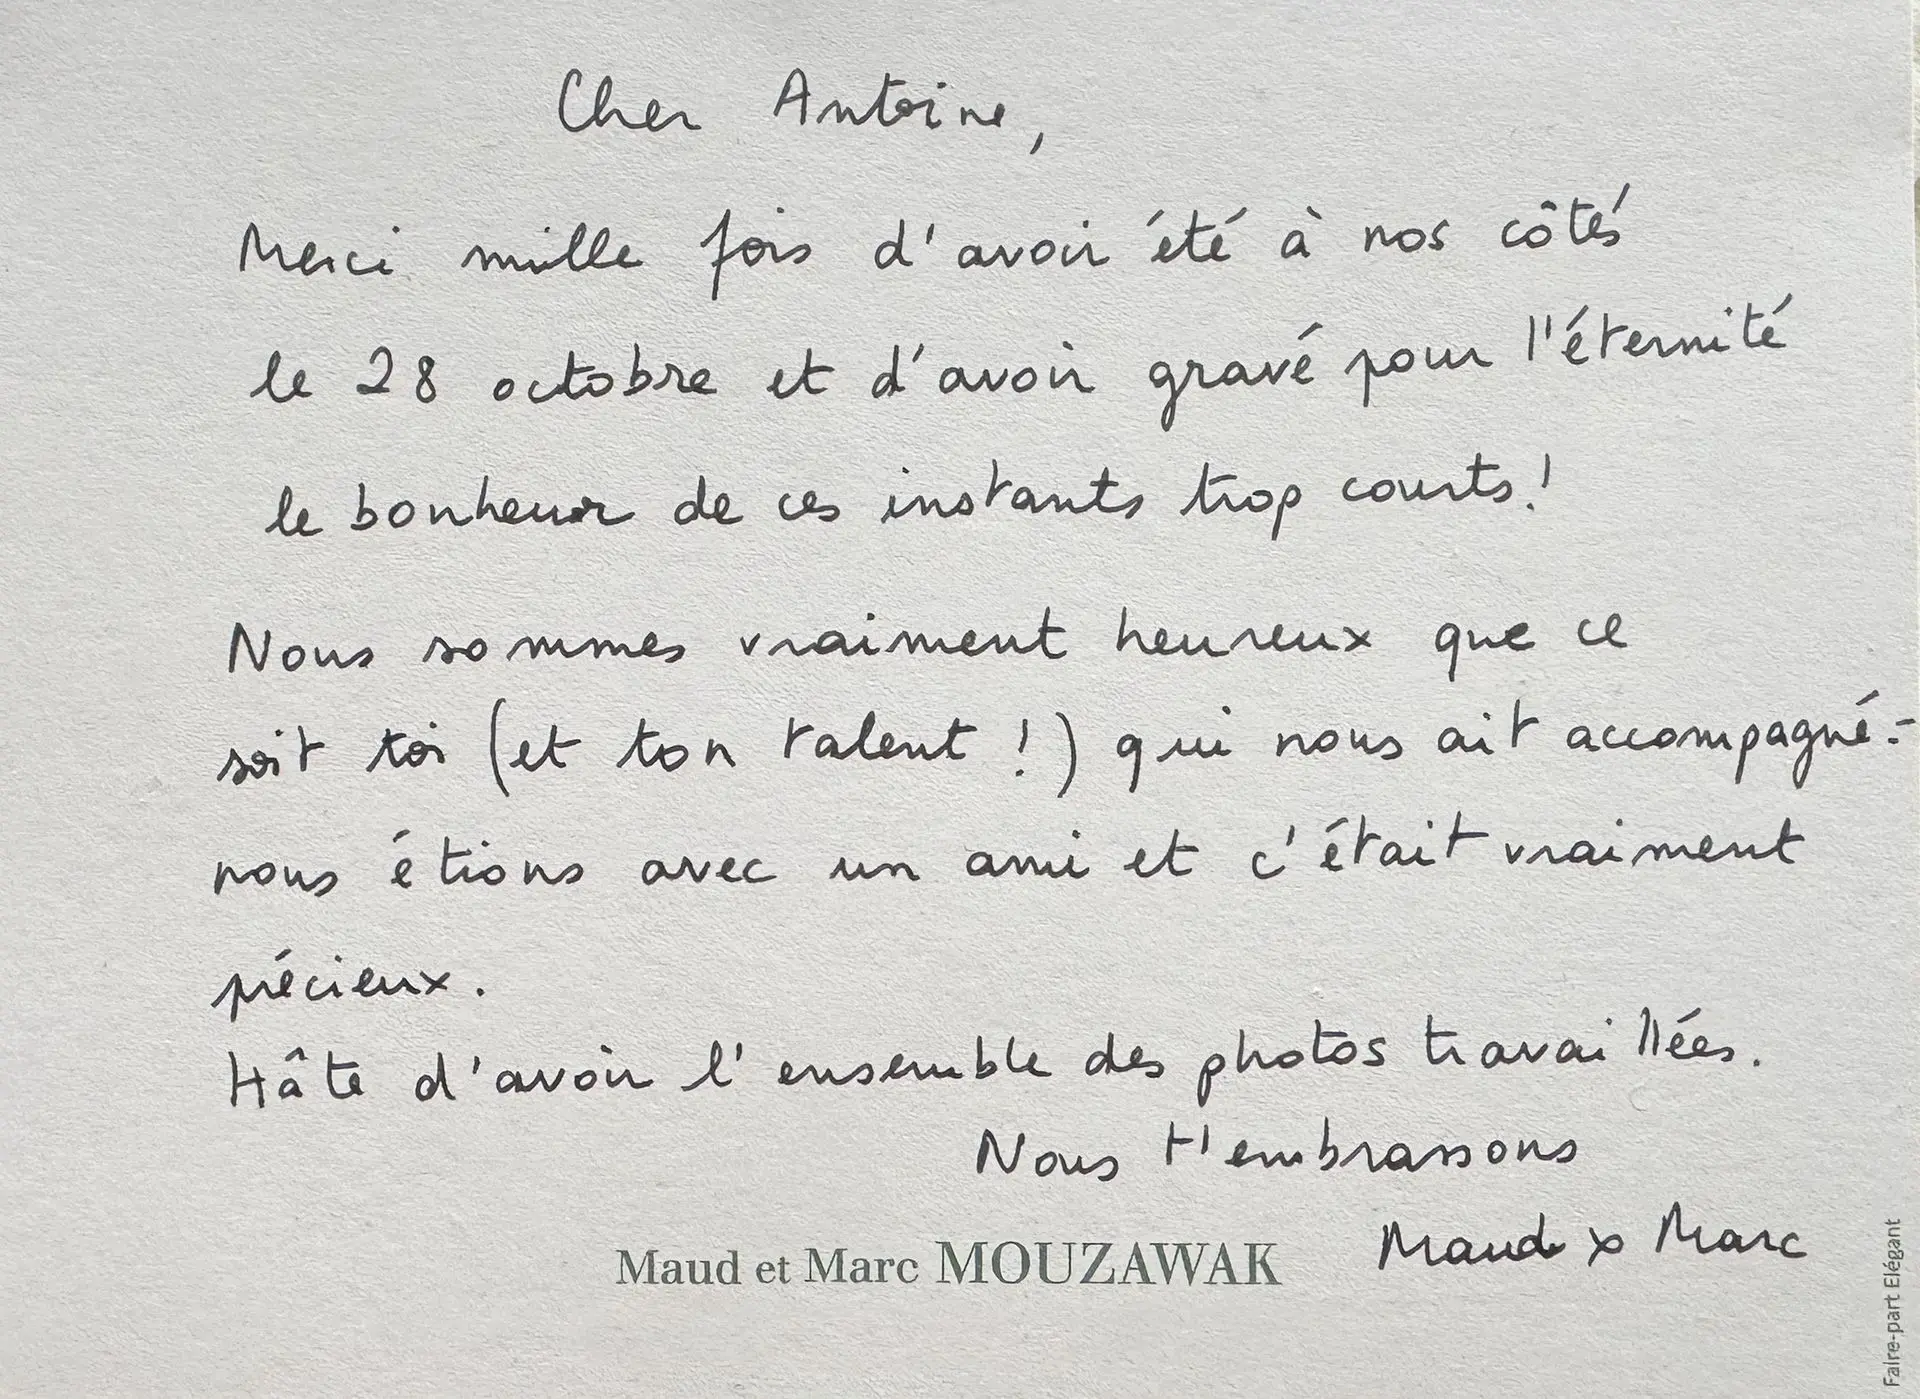 Cher Antoine,
Merci mille fois d'avoir été à nos côtés
le 28 octobre et d'avoir gravé pour l'éternité
le bonheur de ces instants trop courts !
Nous sommes vraiment heureux que ce
soit toi (et ton talent !) qui nous ait accompagné :-
nous étions avec un ami et c'était vraiment
précieux.
Hâte d'avoir l'ensemble des photos travaillées.
Nous t'embrassons
Maud & Marc
Maud et Marc MOUZAWAK
Faire-part Elégant